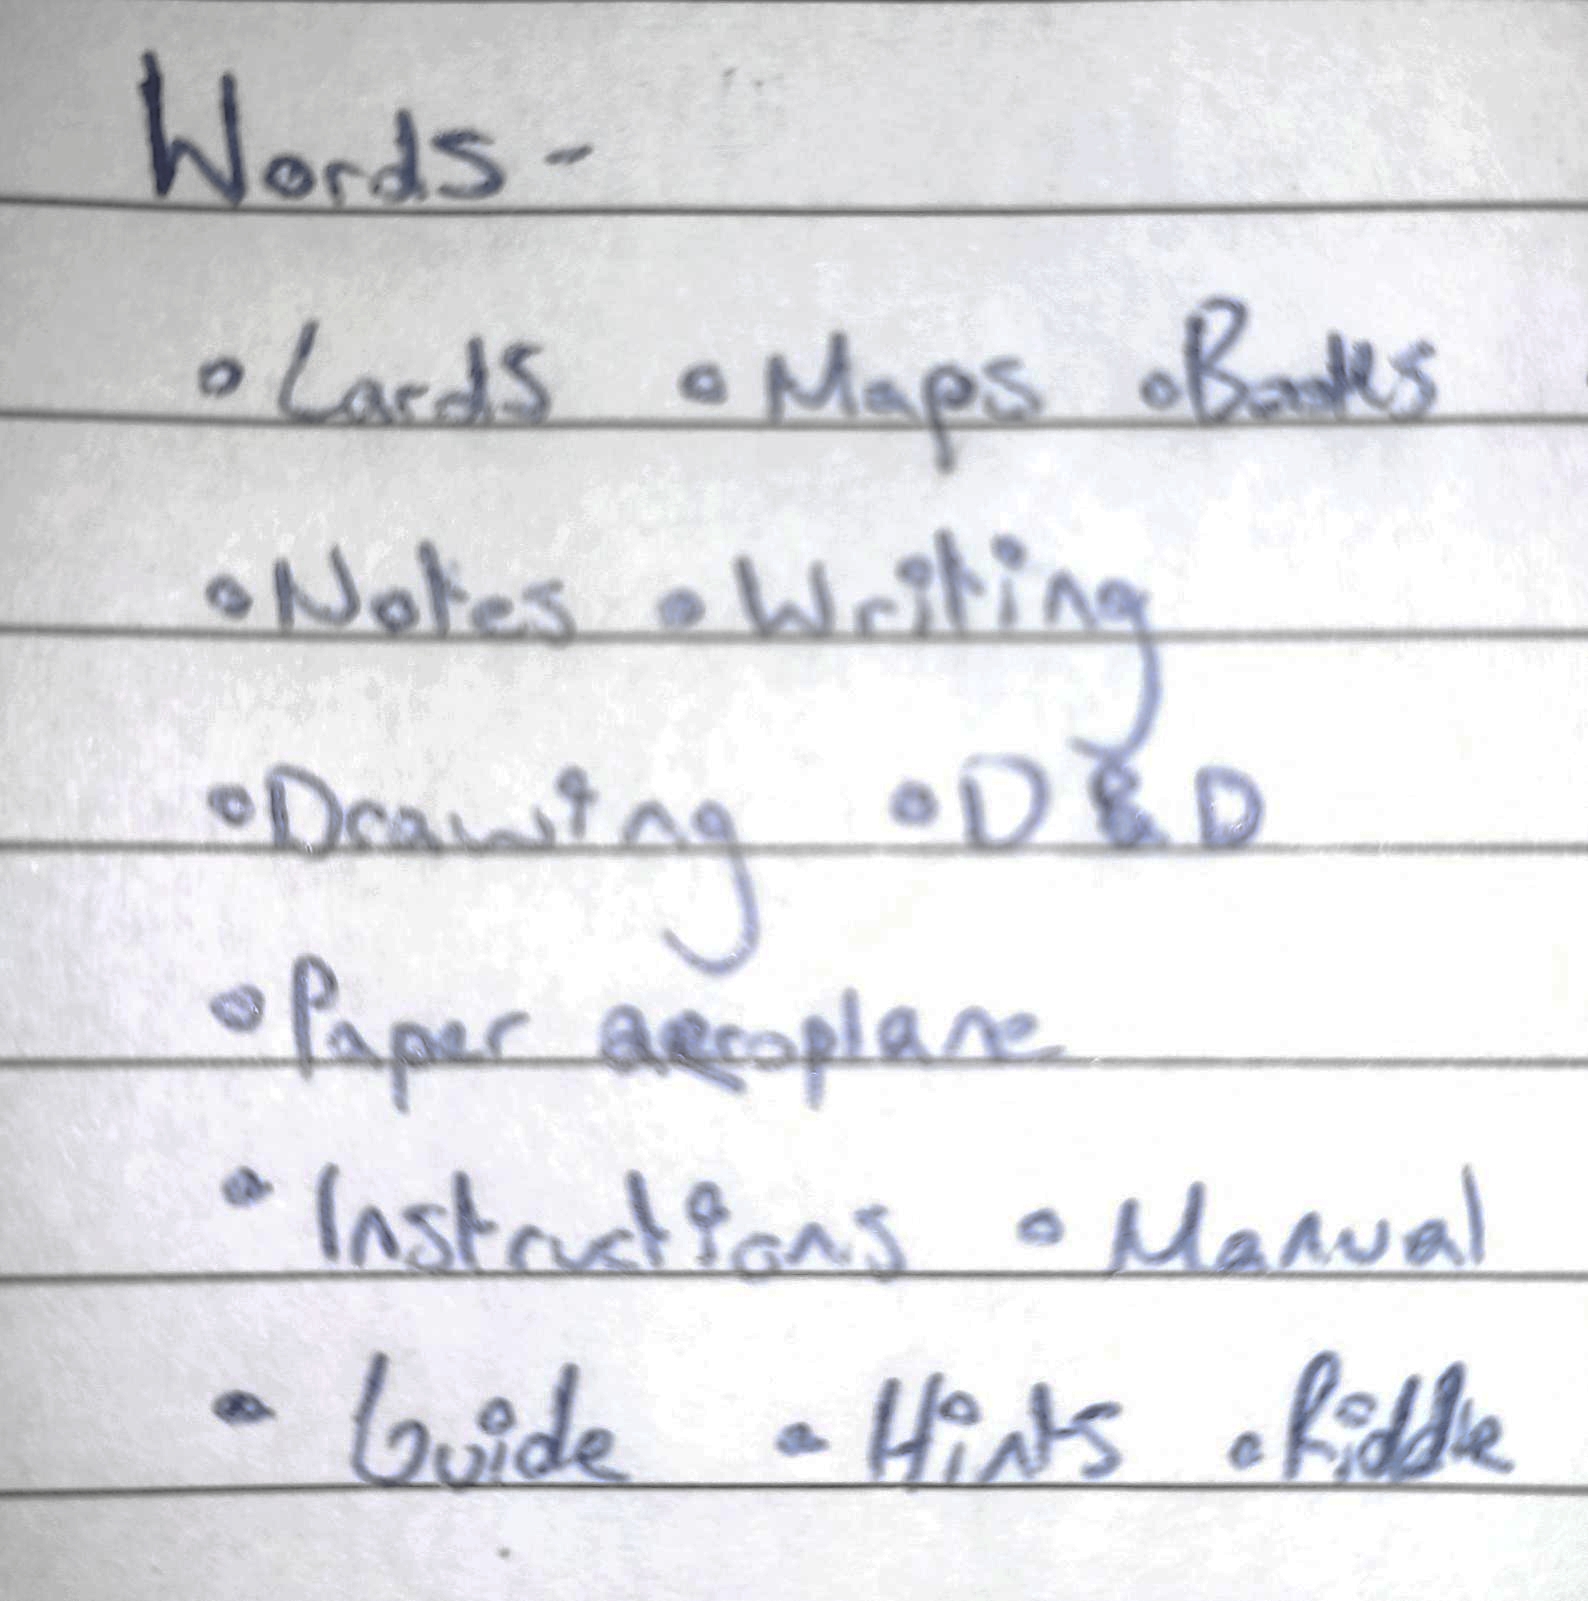 Words -
• Cards • Maps • Books
• Notes • Writing
• Drawing • D & D
• Paper aeroplane
• Instructions • Manual
• Guide • Hints • Riddle